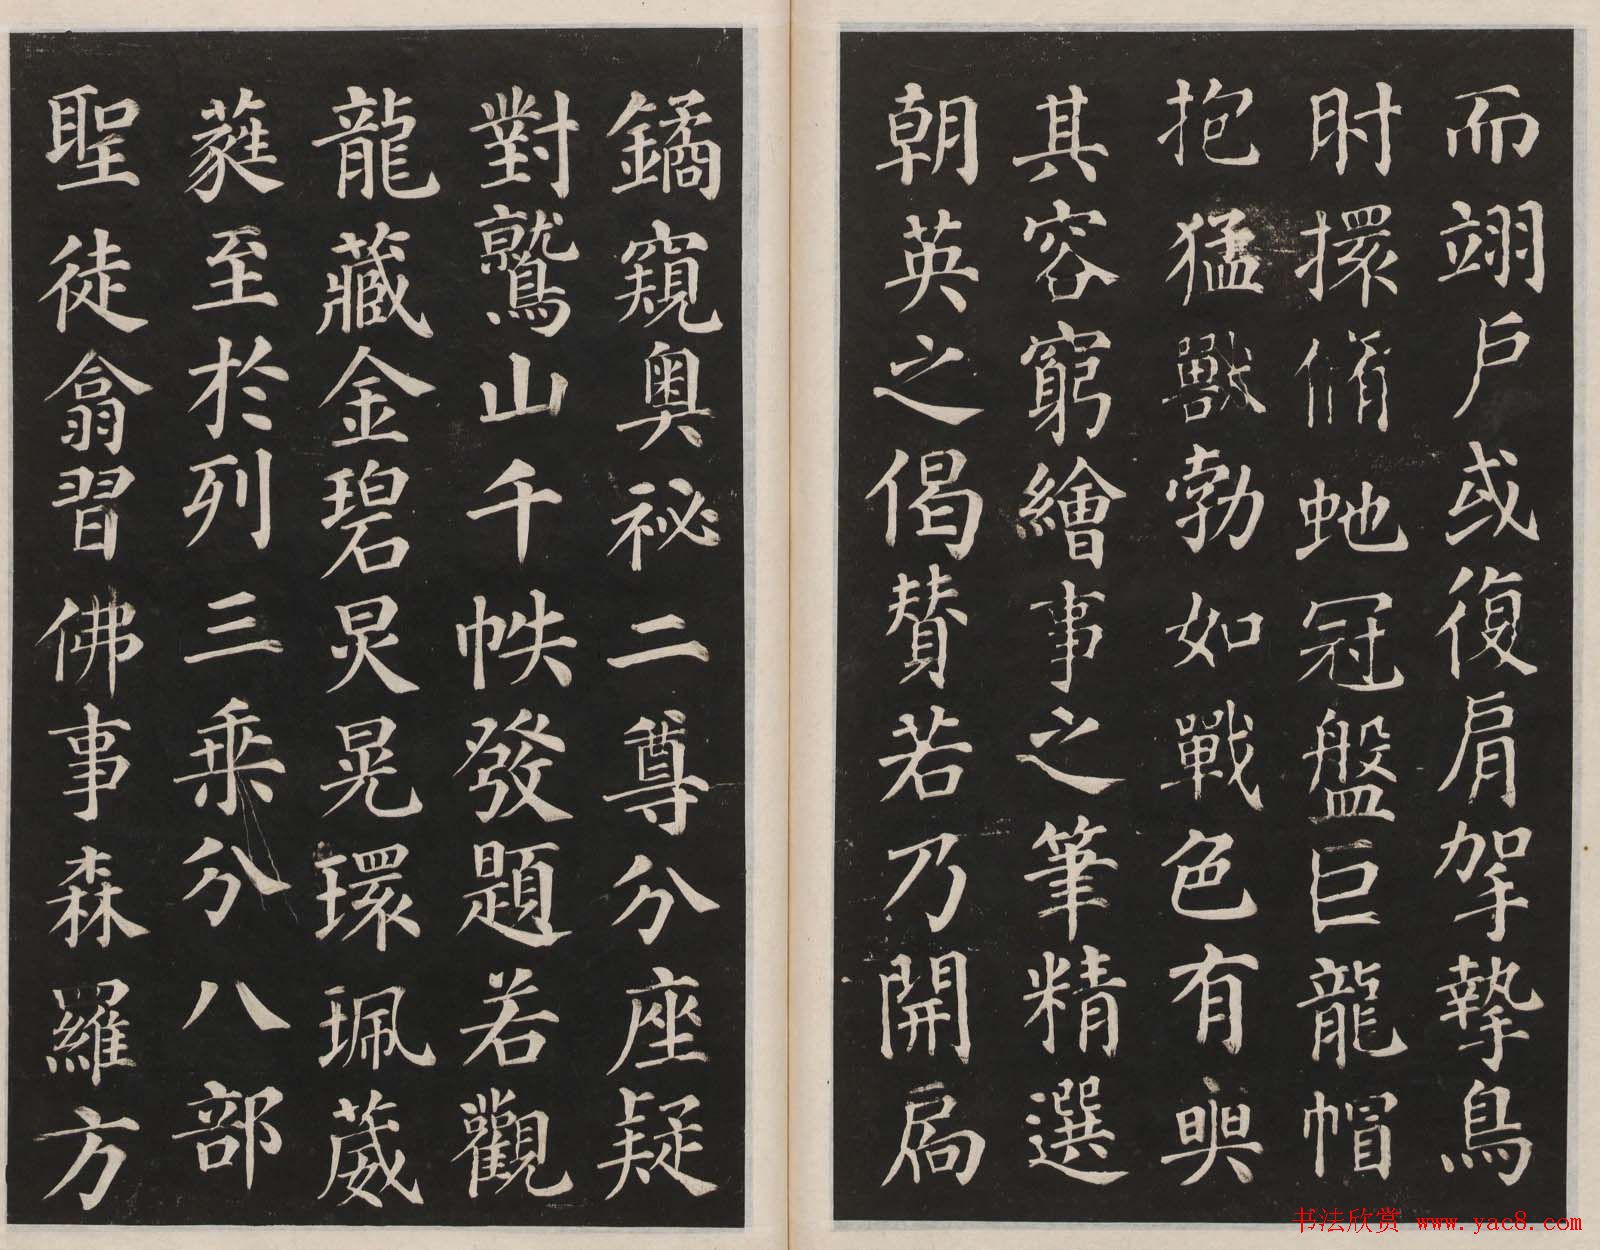 而翊户或復肩挐摯鳥
肘擐脩虵冠盤巨龍帽
抱猛獸勃如戰色有𡘊
其容窮繪事之筆精選
朝英之偈賛若乃開扃
鐍窺奥祕二尊分座疑
對鷲山千帙發題若觀
龍藏金碧炅晃環珮葳
蕤至於列三乘分八部
聖徒翕習佛事森羅方
书法欣赏 www.yac8.com